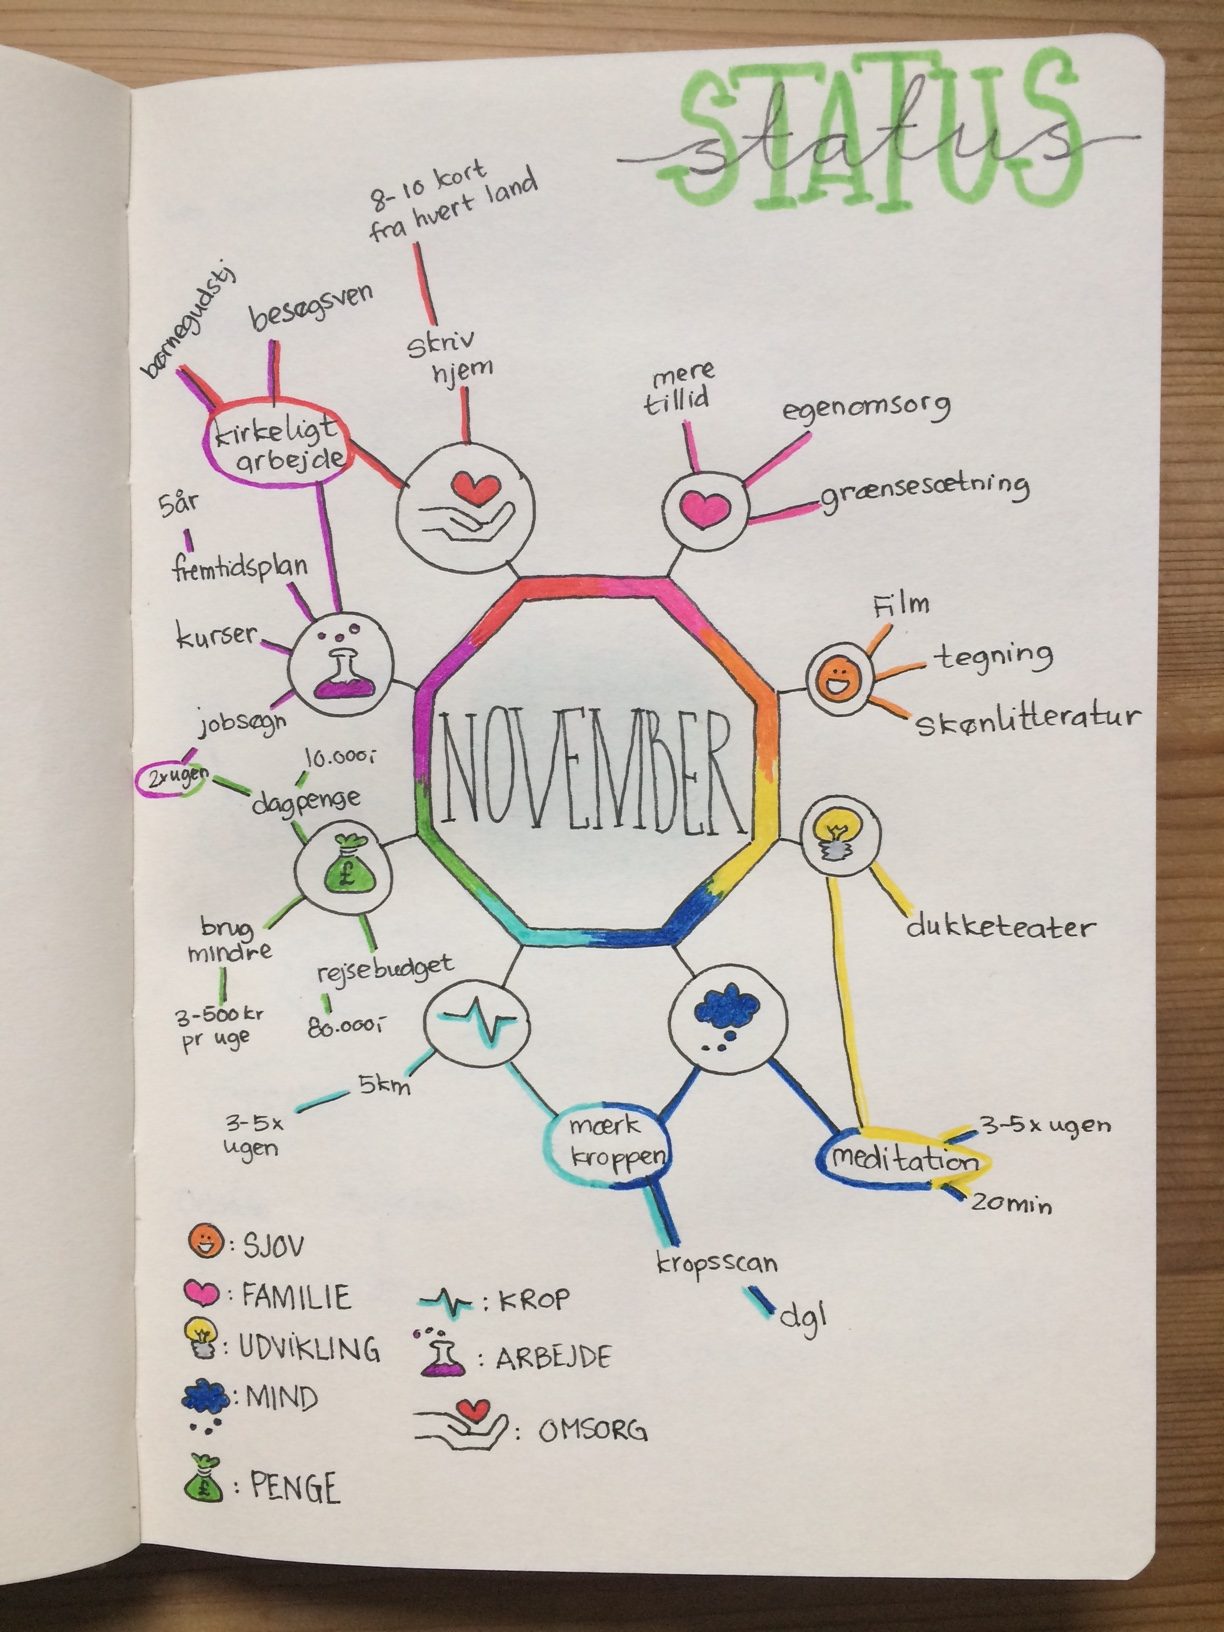 STATUS
status
8-10 kort
fra hvert land
skriv
hjem
børnegudstj
besøgsven
kirkeligt
arbejde
mere
tillid
egenomsorg
grænsesætning
5år
fremtidsplan
kurser
jobsøgn
2x ugen
Film
tegning
skønlitteratur
NOVEMBER
10.000,-
dagpenge
£
brug
mindre
3-500 kr
pr uge
rejsebudget
80.000,-
dukketeater
5km
3-5x
ugen
mærk
kroppen
kropsscan
dgl
meditation
3-5x ugen
20min
: SJOV
: FAMILIE
: UDVIKLING
: MIND
£ : PENGE
: KROP
: ARBEJDE
: OMSORG